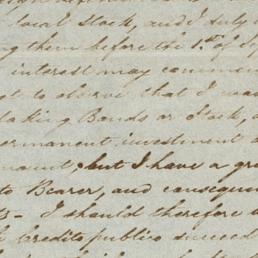 local Stock, and I duly
them before the 1st of Se
interest may commen
to observe that I was
taking Bonds or Stock, a
ermanent investment a
amount; but I have a gr
to Bearer, and consequen
I should therefore
Credito publico succeed